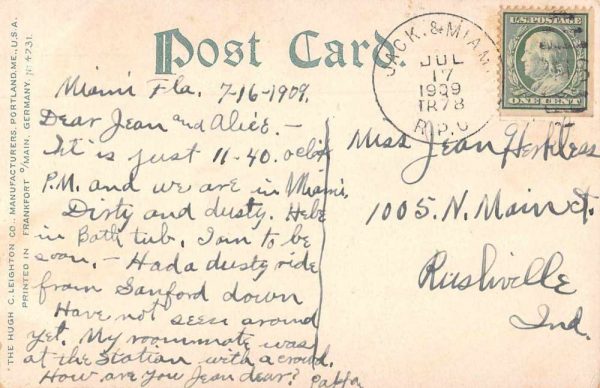 Post Card.
JACK. & MIAMI
JUL
17
1909
TR 78
R.P.O.
U.S. POSTAGE
ONE CENT
THE HUGH C. LEIGHTON CO., MANUFACTURERS, PORTLAND, ME., U.S.A.
PRINTED IN FRANKFORT O/MAIN, GERMANY. No 4231.
Miami Fla. 7-16-1909.
Dear Jean and Alice. -
It is just 11-40. oclk
P.M. and we are in Miami.
Dirty and dusty. Hebe
in Bath tub. I am to be
soon. - Had a dusty ride
from Sanford down
Have not seen around
yet. My roommate was
at the station with a crowd.
How are you Jean dear?
Miss Jean Herkless
1005. N. Main St.
Rushville
Ind.